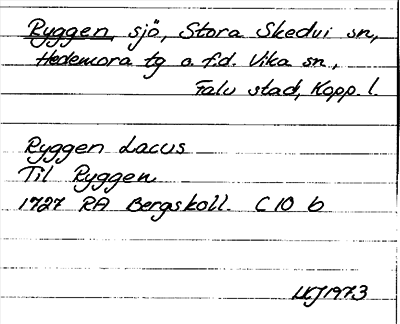 Ryggen, sjö, Stora Skedvi sn,
Hedemora tg o. f.d. Vika sn,
Falu stad, Kopp. l.
Ryggen Lacus
Til Ryggen
1727 RA Bergskoll. C 10 b
1973